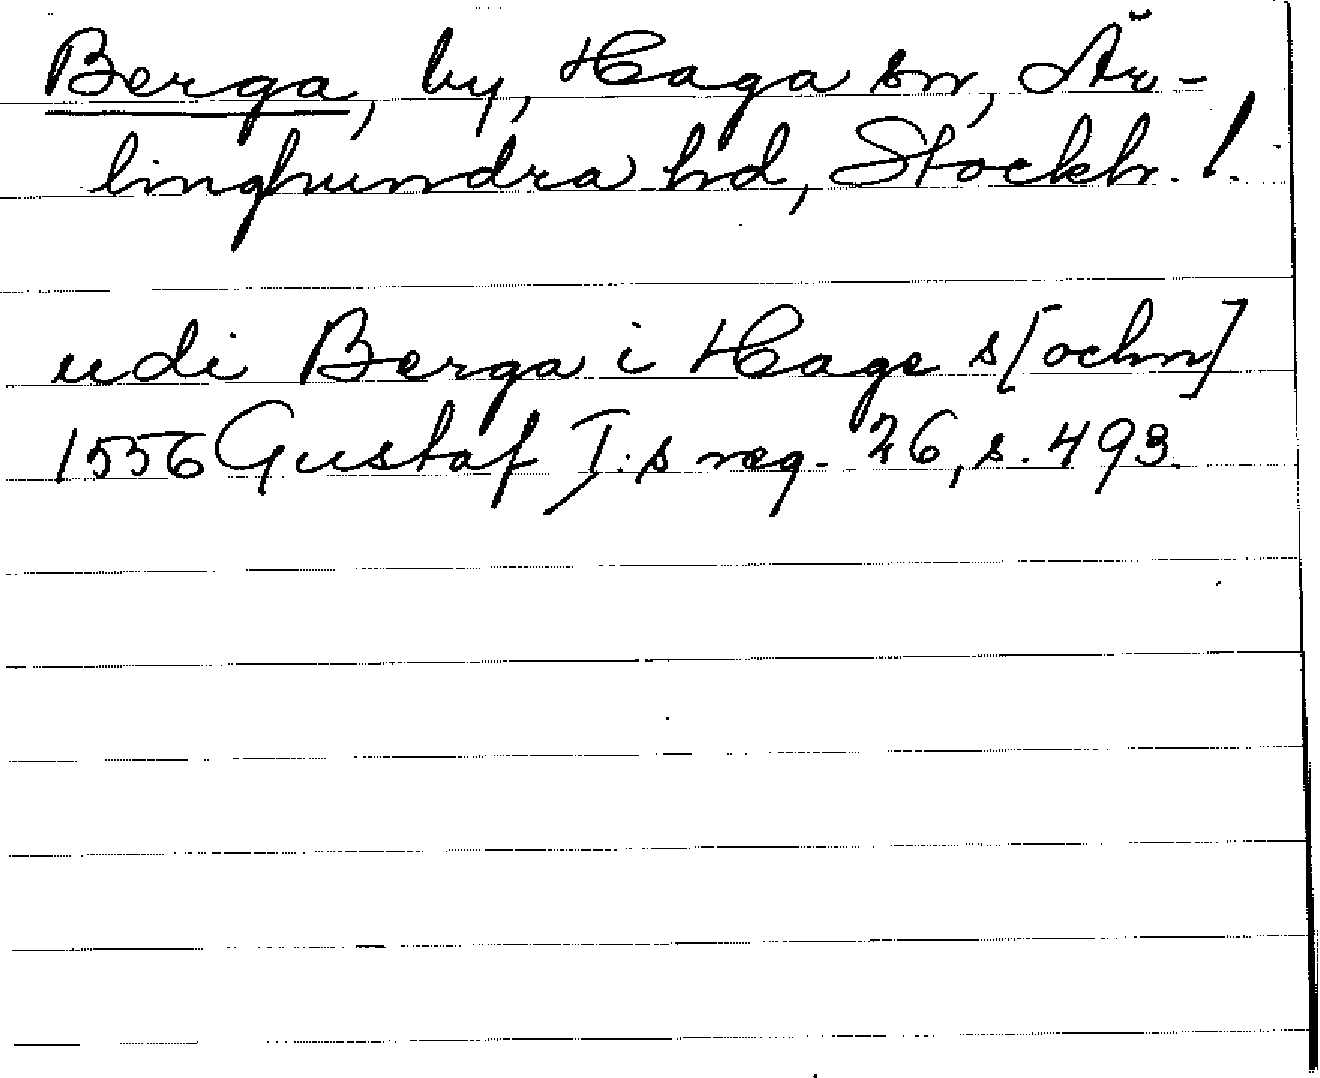 Berga, by, Haga sn, Är-
linghundra hd, Stockh. l.
udi Berga i Hage s[ochn]
1556 Gustaf I:s reg. 26, s. 493.